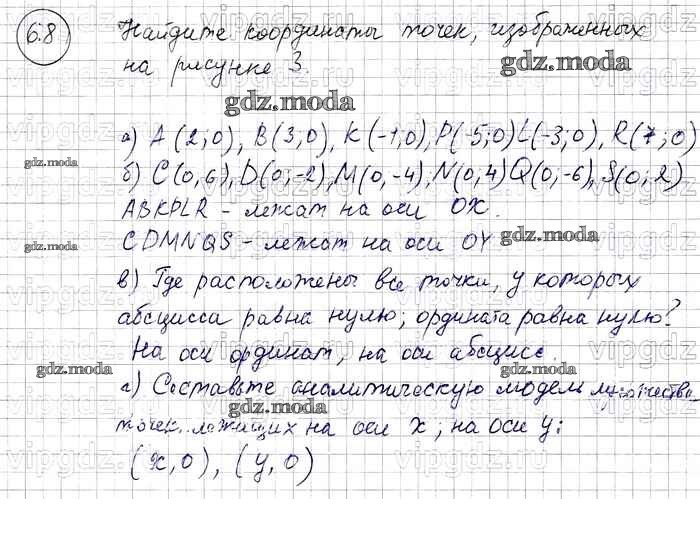 6.8
Найдите координаты точек, изображенных
на рисунке 3.
а) A (2;0), B(3,0), K(-1,0), P(-5;0) L(-3;0), R(7;0)
б) C(0,6), D(0,-2), M(0,-4), N(0,4) Q(0,-6), S(0,2)
ABKPLR - лежат на оси OX.
CDMNQS - лежат на оси OY
в) Где расположены все точки, у которых
абсцисса равна нулю; ордината равна нулю?
На оси ординат, на оси абсцисс.
г) Составьте аналитическую модель множества
точек, лежащих на оси x; на оси y:
(x,0), (y,0)
gdz.moda
gdz.moda
gdz.moda
gdz.moda
gdz.moda
gdz.moda
gdz.moda
gdz.moda
gdz.moda
vipgdz.ru